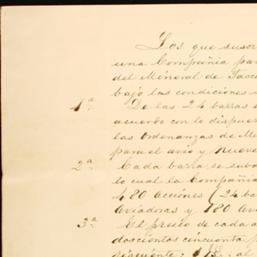 Los que suscr
una Compañia pa
del Mineral de Tasc
bajo las condiciones
1ª De las 24 barras
acuerdo con lo dispue
las Ordenanzas de Me
para el avío y nueve
2ª Cada barra se
lo cual la Compañia
480 acciones (24 ba
Aviadoras y 180 Av
3ª El precio de cada a
doscientos cincuenta p
siguiente: $